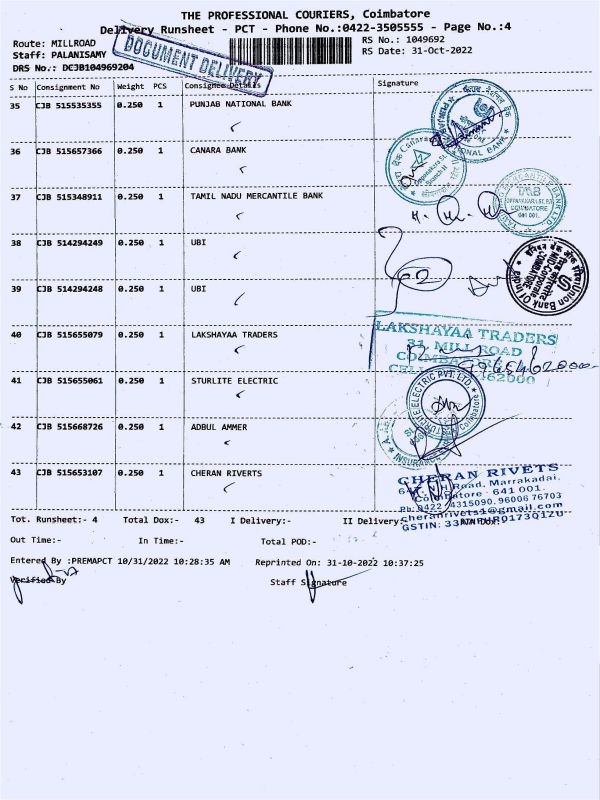 THE PROFESSIONAL COURIERS, Coimbatore
Delivery Runsheet - PCT - Phone No.:0422-3505555 - Page No.:4
Route: MILLROAD
RS No.: 1049692
Staff: PALANISAMY
RS Date: 31-Oct-2022
DRS No.: DCJB104969204
DOCUMENT DELIVERY
S No Consignment No Weight PCS Consignee Details Signature
35 CJB 515535355 0.250 1 PUNJAB NATIONAL BANK
36 CJB 515657366 0.250 1 CANARA BANK
37 CJB 515348911 0.250 1 TAMIL NADU MERCANTILE BANK
TMB
COIMBATORE
641 001.
38 CJB 514294249 0.250 1 UBI
Union Bank Of India
39 CJB 514294248 0.250 1 UBI
40 CJB 515655079 0.250 1 LAKSHAYAA TRADERS
LAKSHAYAA TRADERS
31 MILL ROAD
41 CJB 515655061 0.250 1 STURLITE ELECTRIC
STURLITE ELECTRIC PVT. LTD.
Coimbatore
42 CJB 515668726 0.250 1 ADBUL AMMER
43 CJB 515653107 0.250 1 CHERAN RIVERTS
CHERAN RIVETS
Road, Marrakadai,
Coimbatore - 641 001.
Ph: 0422 - 4315090, 96006 76703
cheranrivets1@gmail.com
Tot. Runsheet:- 4 Total Dox:- 43 I Delivery:- II Delivery:- RTN DOX:
Out Time:- In Time:- Total POD:-
Entered By :PREMAPCT 10/31/2022 10:28:35 AM Reprinted On: 31-10-2022 10:37:25
Verified By Staff Signature